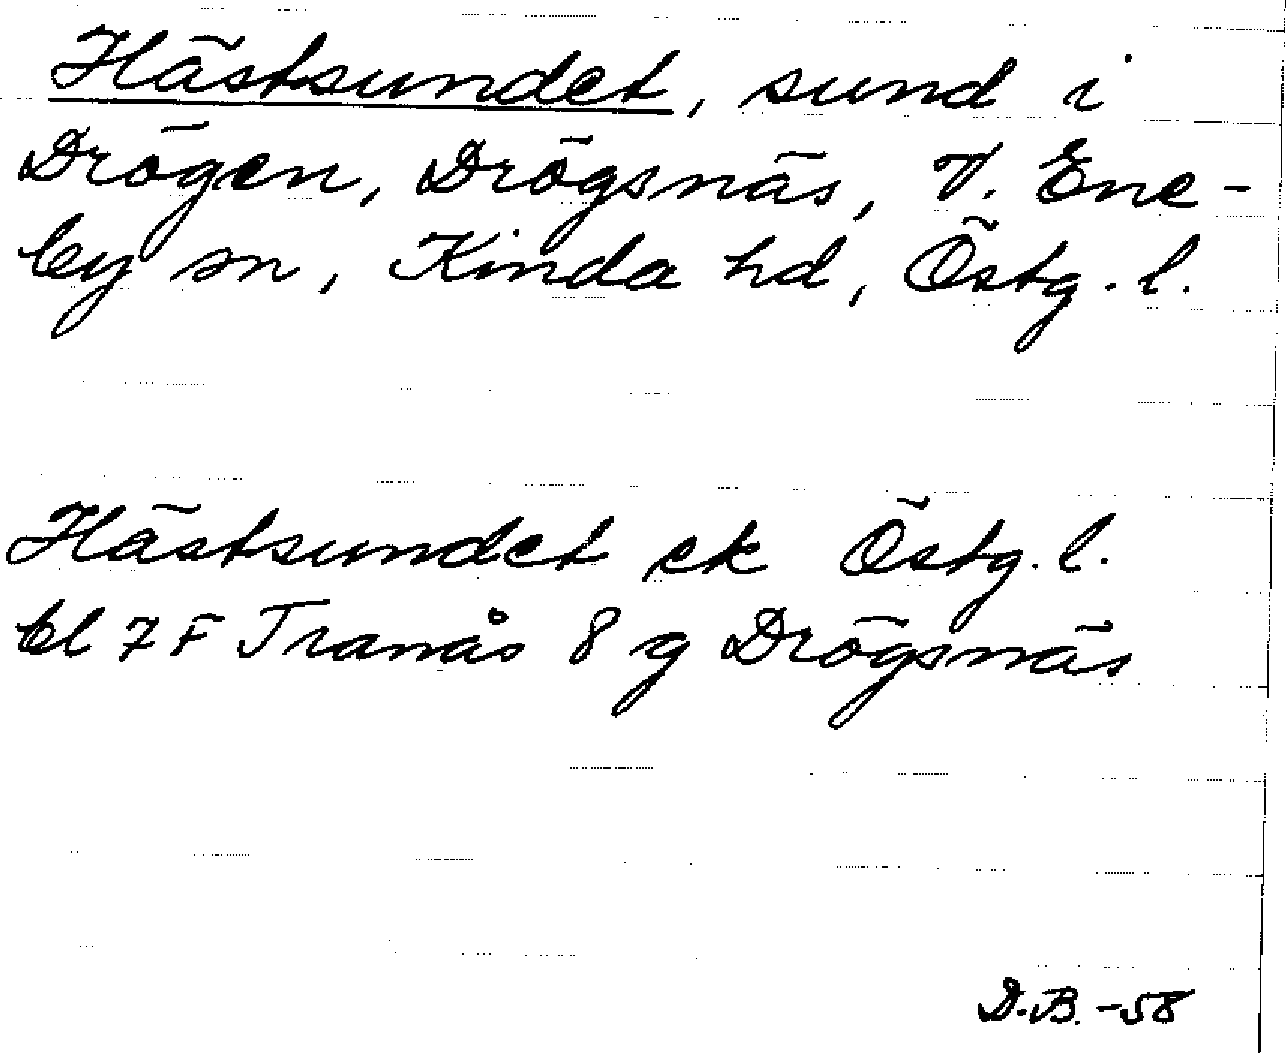 Hästsundet, sund i
Drögen, Drögsnäs, V. Ene-
by sn, Kinda hd, Östg. l.
Hästsundet ek Östg. l.
bl 7 F Tranås 8 g Drögsnäs
D.B. -58